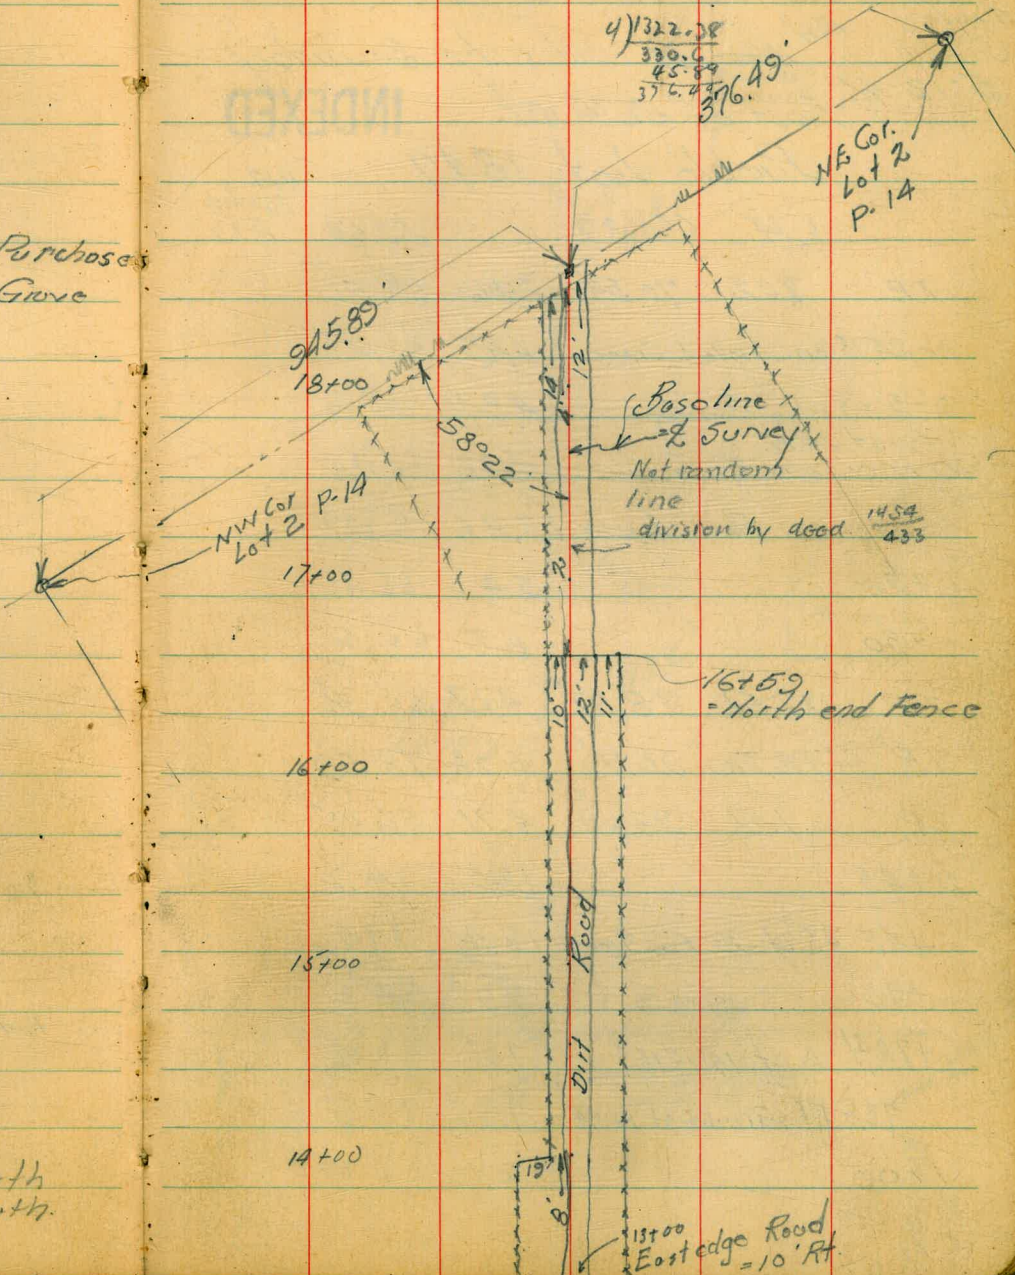 4)1322.38
330.6
45.89
376.49
376.49'
INDEXED
NE Cor.
Lot 2
P. 14
Purchase
Grove
945.89'
18+00
12'
14'
4'
58°22'
Baseline
=℄ Survey
Not random
line
division by deed
1454
433
NW Cor
Lot 2 P-14
17+00
2'
10'
12'
11'
16+59
=North end Fence
16+00
15+00
Dirt Road
14+00
19'
8'
th
th.
13+00
East edge Road
=10' Rt.